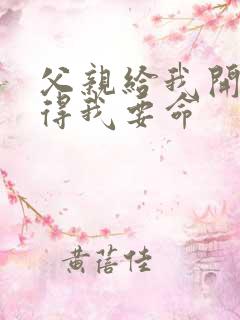 父親給我開
得我要命
黃蓓佳